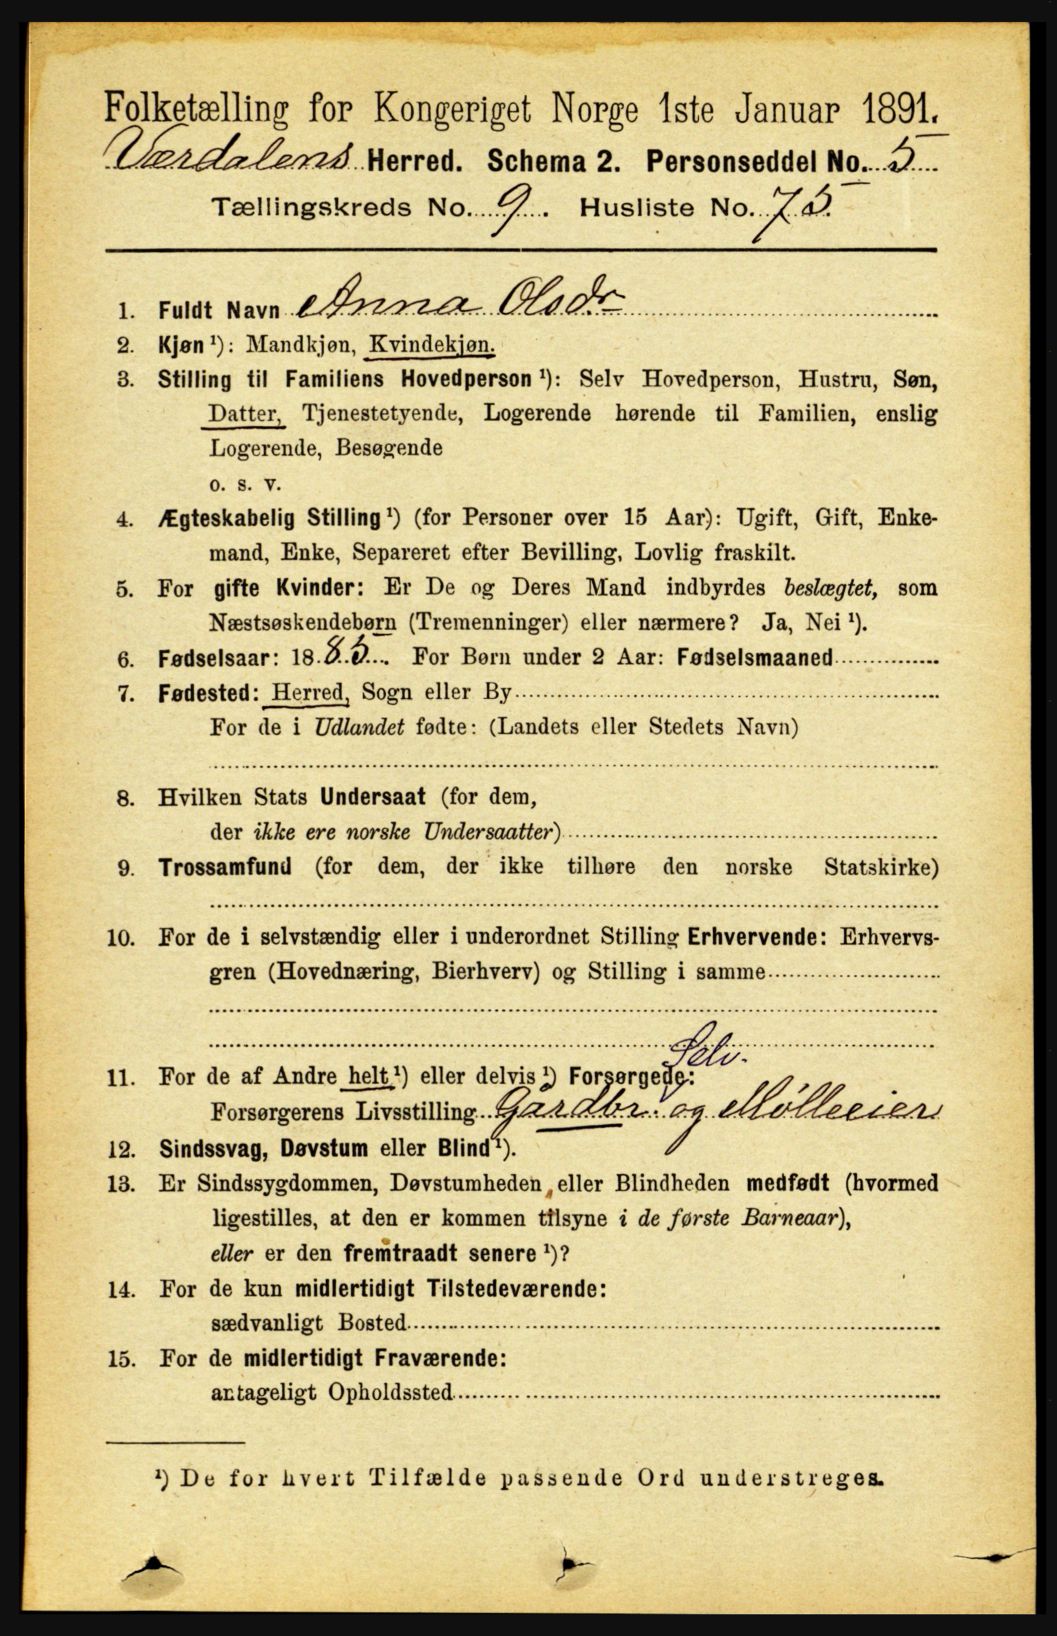 Folketælling for Kongeriget Norge 1ste Januar 1891.
Værdalens Herred. Schema 2. Personseddel No. 5
Tællingskreds No. 9. Husliste No. 75.
1. Fuldt Navn Anna Olsdr.
2. Kjøn ¹): Mandkjøn, Kvindekjøn.
3. Stilling til Familiens Hovedperson ¹): Selv Hovedperson, Hustru, Søn,
Datter, Tjenestetyende, Logerende hørende til Familien, enslig
Logerende, Besøgende
o. s. v.
4. Ægteskabelig Stilling ¹) (for Personer over 15 Aar): Ugift, Gift, Enke-
mand, Enke, Separeret efter Bevilling, Lovlig fraskilt.
5. For gifte Kvinder: Er De og Deres Mand indbyrdes beslægtet, som
Næstsøskendebørn (Tremenninger) eller nærmere? Ja, Nei ¹).
6. Fødselsaar: 1885. For Børn under 2 Aar: Fødselsmaaned
7. Fødested: Herred, Sogn eller By
For de i Udlandet fødte: (Landets eller Stedets Navn)
8. Hvilken Stats Undersaat (for dem,
der ikke ere norske Undersaatter)
9. Trossamfund (for dem, der ikke tilhøre den norske Statskirke)
10. For de i selvstændig eller i underordnet Stilling Erhvervende: Erhvervs-
gren (Hovednæring, Bierhverv) og Stilling i samme
Selv.
11. For de af Andre helt ¹) eller delvis ¹) Forsørgede:
Forsørgerens Livsstilling Gårdbr. og Mølleeier
12. Sindssvag, Døvstum eller Blind ¹).
13. Er Sindssygdommen, Døvstumheden eller Blindheden medfødt (hvormed
ligestilles, at den er kommen tilsyne i de første Barneaar),
eller er den fremtraadt senere ¹)?
14. For de kun midlertidigt Tilstedeværende:
sædvanligt Bosted
15. For de midlertidigt Fraværende:
antageligt Opholdssted
¹) De for hvert Tilfælde passende Ord understreges.